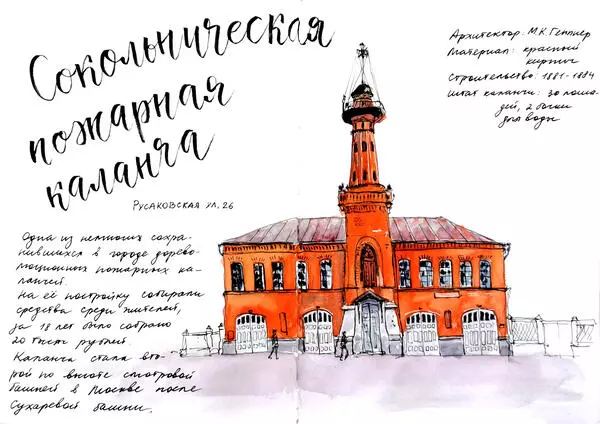 Сокольническая
пожарная
каланча
Русаковская ул, 26
Архитектор: М.К. Геппнер
Материал: красный
кирпич
Строительство: 1881-1884
Штат каланчи: 30 лоша-
дей, 2 бочки
для воды
Одна из немногих сохра-
нившихся в городе дорево-
люционных пожарных ка-
ланчей.
На её постройку собирали
средства среди жителей,
за 18 лет было собрано
20 тысяч рублей.
Каланча стала вто-
рой по высоте смотровой
башней в Москве после
Сухаревой башни.